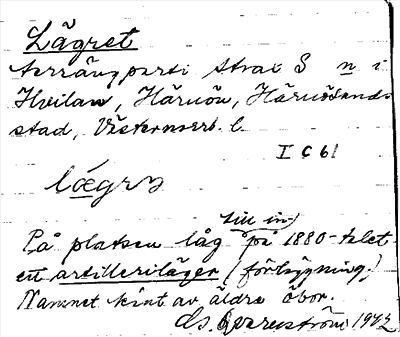 Lägret
terrängparti strax S n i
Hvilan, Härnön, Härnösands
stad, Västernorrl. l.
I C 61
lægrə
till in
På platsen låg på 1880-talet
ett artilleriläger (förläggning)
Namnet känt av äldre öbor.
1942